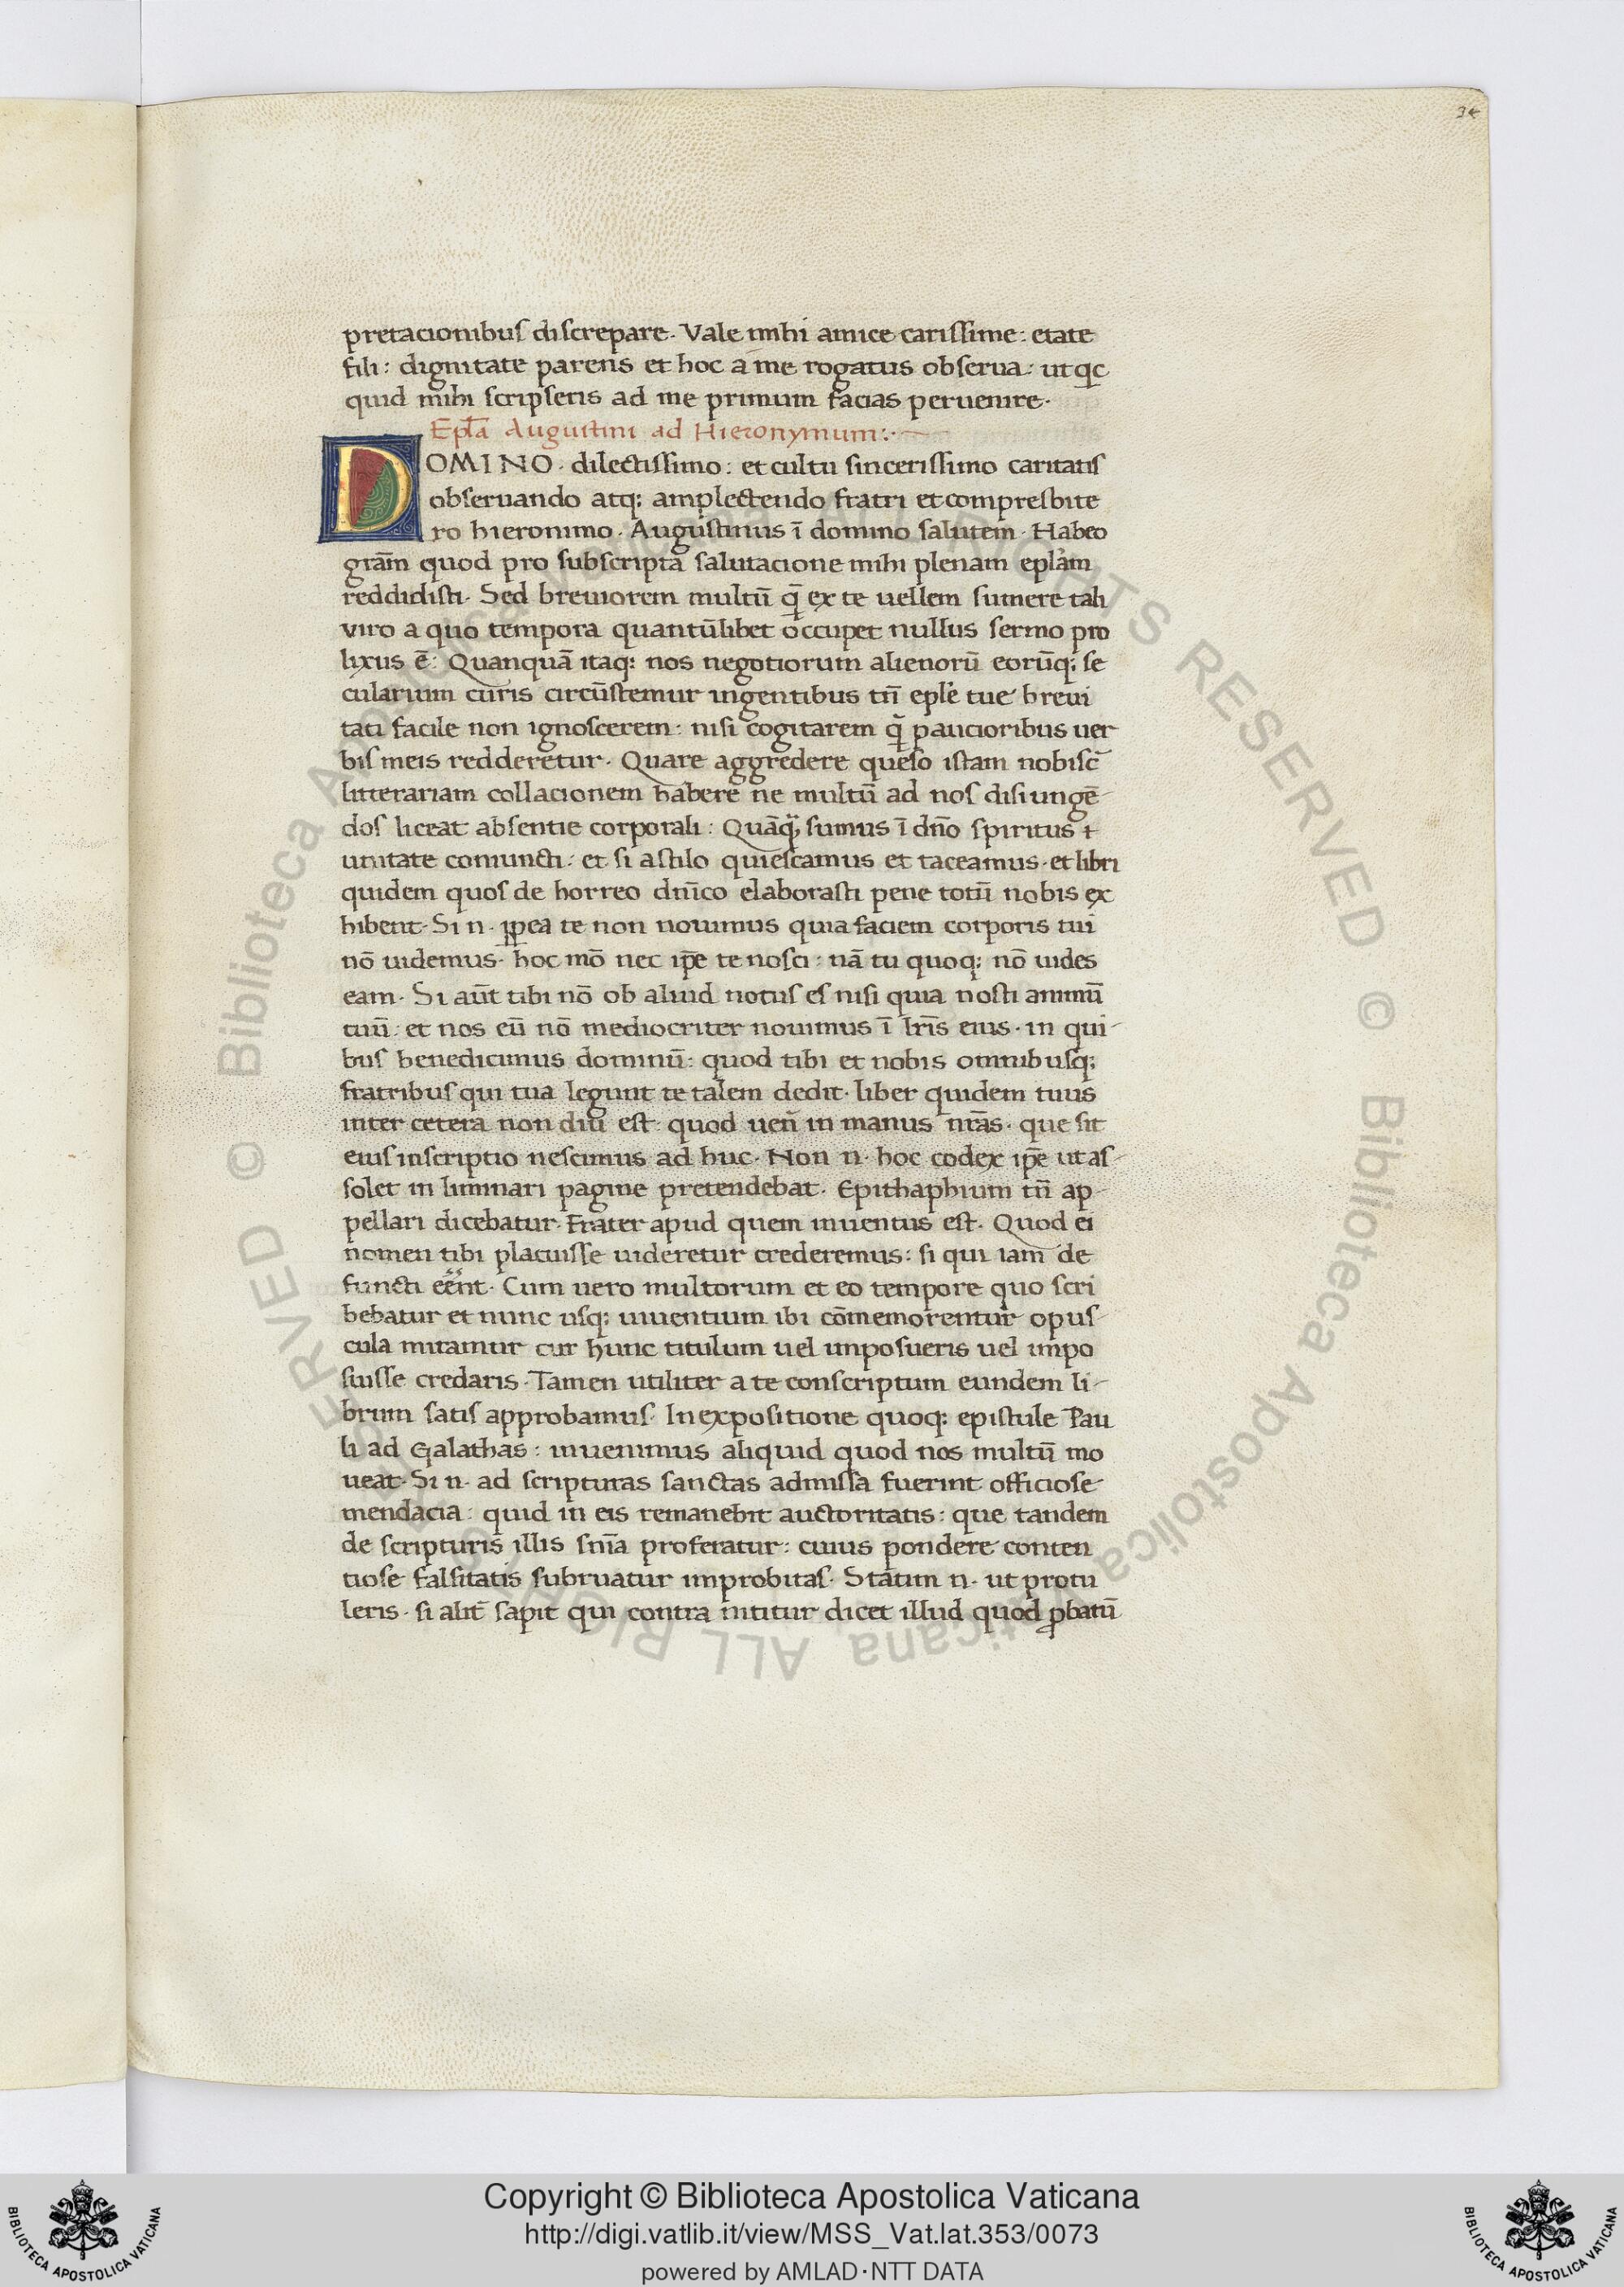 34
pretacionibus discrepare. Vale mihi amice carissime: etate
fili: dignitate parens et hoc a me rogatus obserua: ut qc
quid mihi scripseris ad me primum facias peruenire.
Epl̅a Augustini ad Hieronymum:·
DOMINO. dilectissimo: et cultu sincerissimo caritatis
obseruando atq; amplectendo fratri et compresbite
ro hieronimo. Augustinus i̅ domino salutem. Habeo
gra̅m quod pro subscripta salutacione mihi plenam epl̅am
reddidisti. Sed breuiorem multu̅ q̅ ex te uellem sumere tali
viro a quo tempora quantu̅libet occupet nullus sermo pro
lixus e̅: Quanqua̅ itaq; nos negotiorum alienoru̅ eoru̅q; se
cularium curis circu̅stemur ingentibus tn̅ epl̅e tue breui
tati facile non ignoscerem: nisi cogitarem q̅ paucioribus uer
bis meis redderetur. Quare aggredere queso istam nobisc̅
litterariam collacionem habere ne multu̅ ad nos disiunge̅
dos liceat absentie corporali: Qua̅q̅ sumus i̅ dn̅o spiritus i
unitate coniuncti: et si a stilo quiescamus et taceamus. et libri
quidem quos de horreo dn̅ico elaborasti pene totu̅ nobis ex
hibent. Si n. ꝓpea te non nouimus quia faciem corporis tui
no̅ uidemus. hoc mo̅ nec ip̅e te nosci: na̅ tu quoq; no̅ uides
eam. Si aut̅ tibi no̅ ob aliud notus es nisi quia nosti animu̅
tuu̅: et nos eu̅ no̅ mediocriter nouimus i̅ lr̅is eius. in qui-
bus benedicimus dominu̅: quod tibi et nobis omnibusq;
fratribus qui tua legunt te talem dedit. liber quidem tuus
inter cetera non diu est: quod uen̅ in manus nr̅as. que sit
eius inscriptio nescimus ad huc. Non n. hoc codex ip̅e ut as-
solet in liminari pagine pretendebat. Epithaphium tn̅ ap-
pellari dicebatur. Frater apud quem inuentus est. Quod ei
nomen tibi placuisse uideretur crederemus: si qui iam de
functi ee̅nt. Cum uero multorum et eo tempore quo scri
bebatur et nunc usq; uiuentium ibi co̅memorentur opus-
cula miramur cur hunc titulum uel imposueris uel impo
suisse credaris. Tamen utiliter a te conscriptum eundem li-
brum satis approbamus. In expositione quoq; epistule Pau
li ad Galathas: inuenimus aliquid quod nos multu̅ mo
ueat. Si n. ad scripturas sanctas admissa fuerint officiose
mendacia: quid in eis remanebit auctoritatis: que tandem
de scripturis illis sn̅ia proferatur: cuius pondere conten
tiose falsitatis subruatur improbitas. Statim n. ut protu
leris. si alit̅ sapit qui contra nititur dicet illud quod ꝓbatu̅
© Biblioteca Apostolica Vaticana ALL RIGHTS RESERVED © Biblioteca Apostolica Vaticana ALL RIGHTS RESERVED
Copyright © Biblioteca Apostolica Vaticana
http://digi.vatlib.it/view/MSS_Vat.lat.353/0073
powered by AMLAD·NTT DATA
BIBLIOTECA APOSTOLICA VATICANA
BIBLIOTECA APOSTOLICA VATICANA